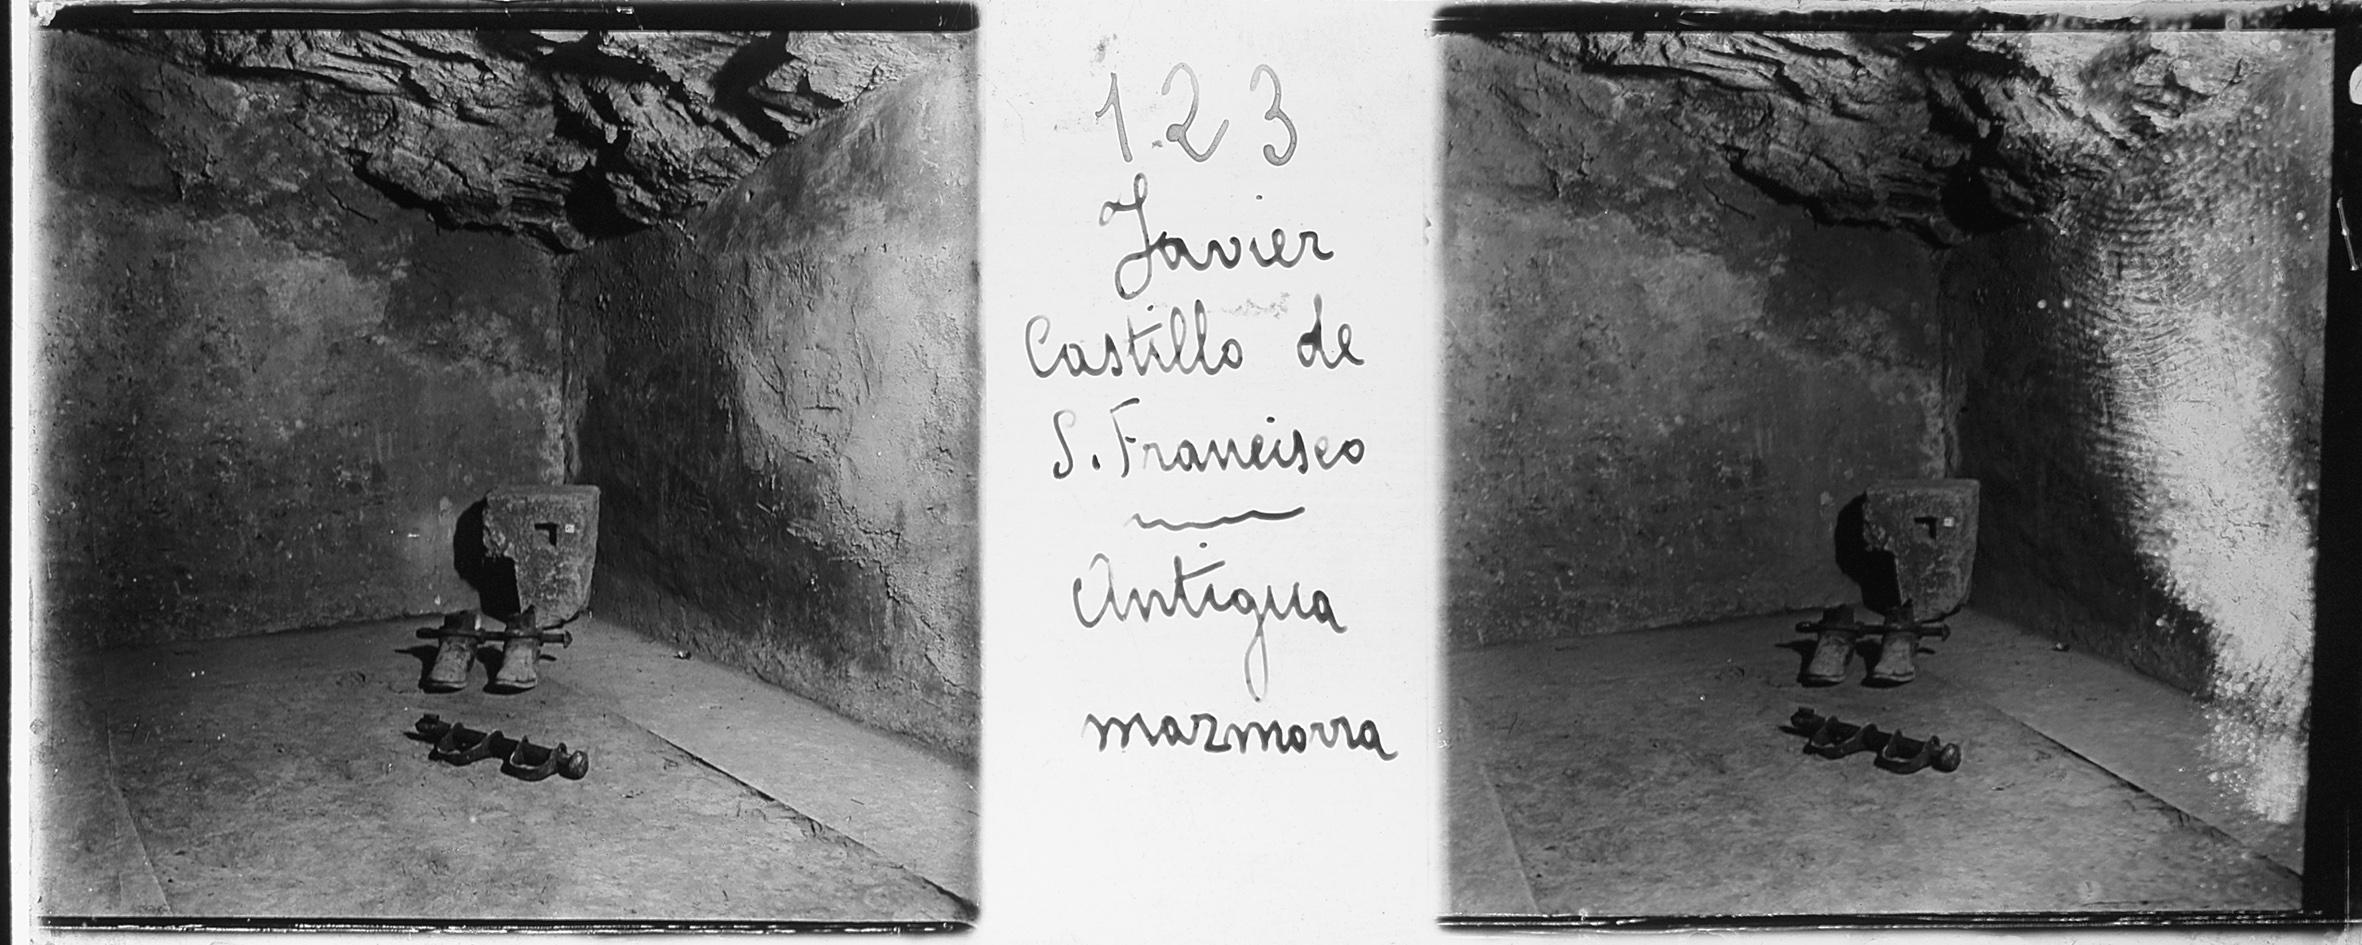 123
Javier
Castillo de
S. Francisco
Antigua
mazmorra